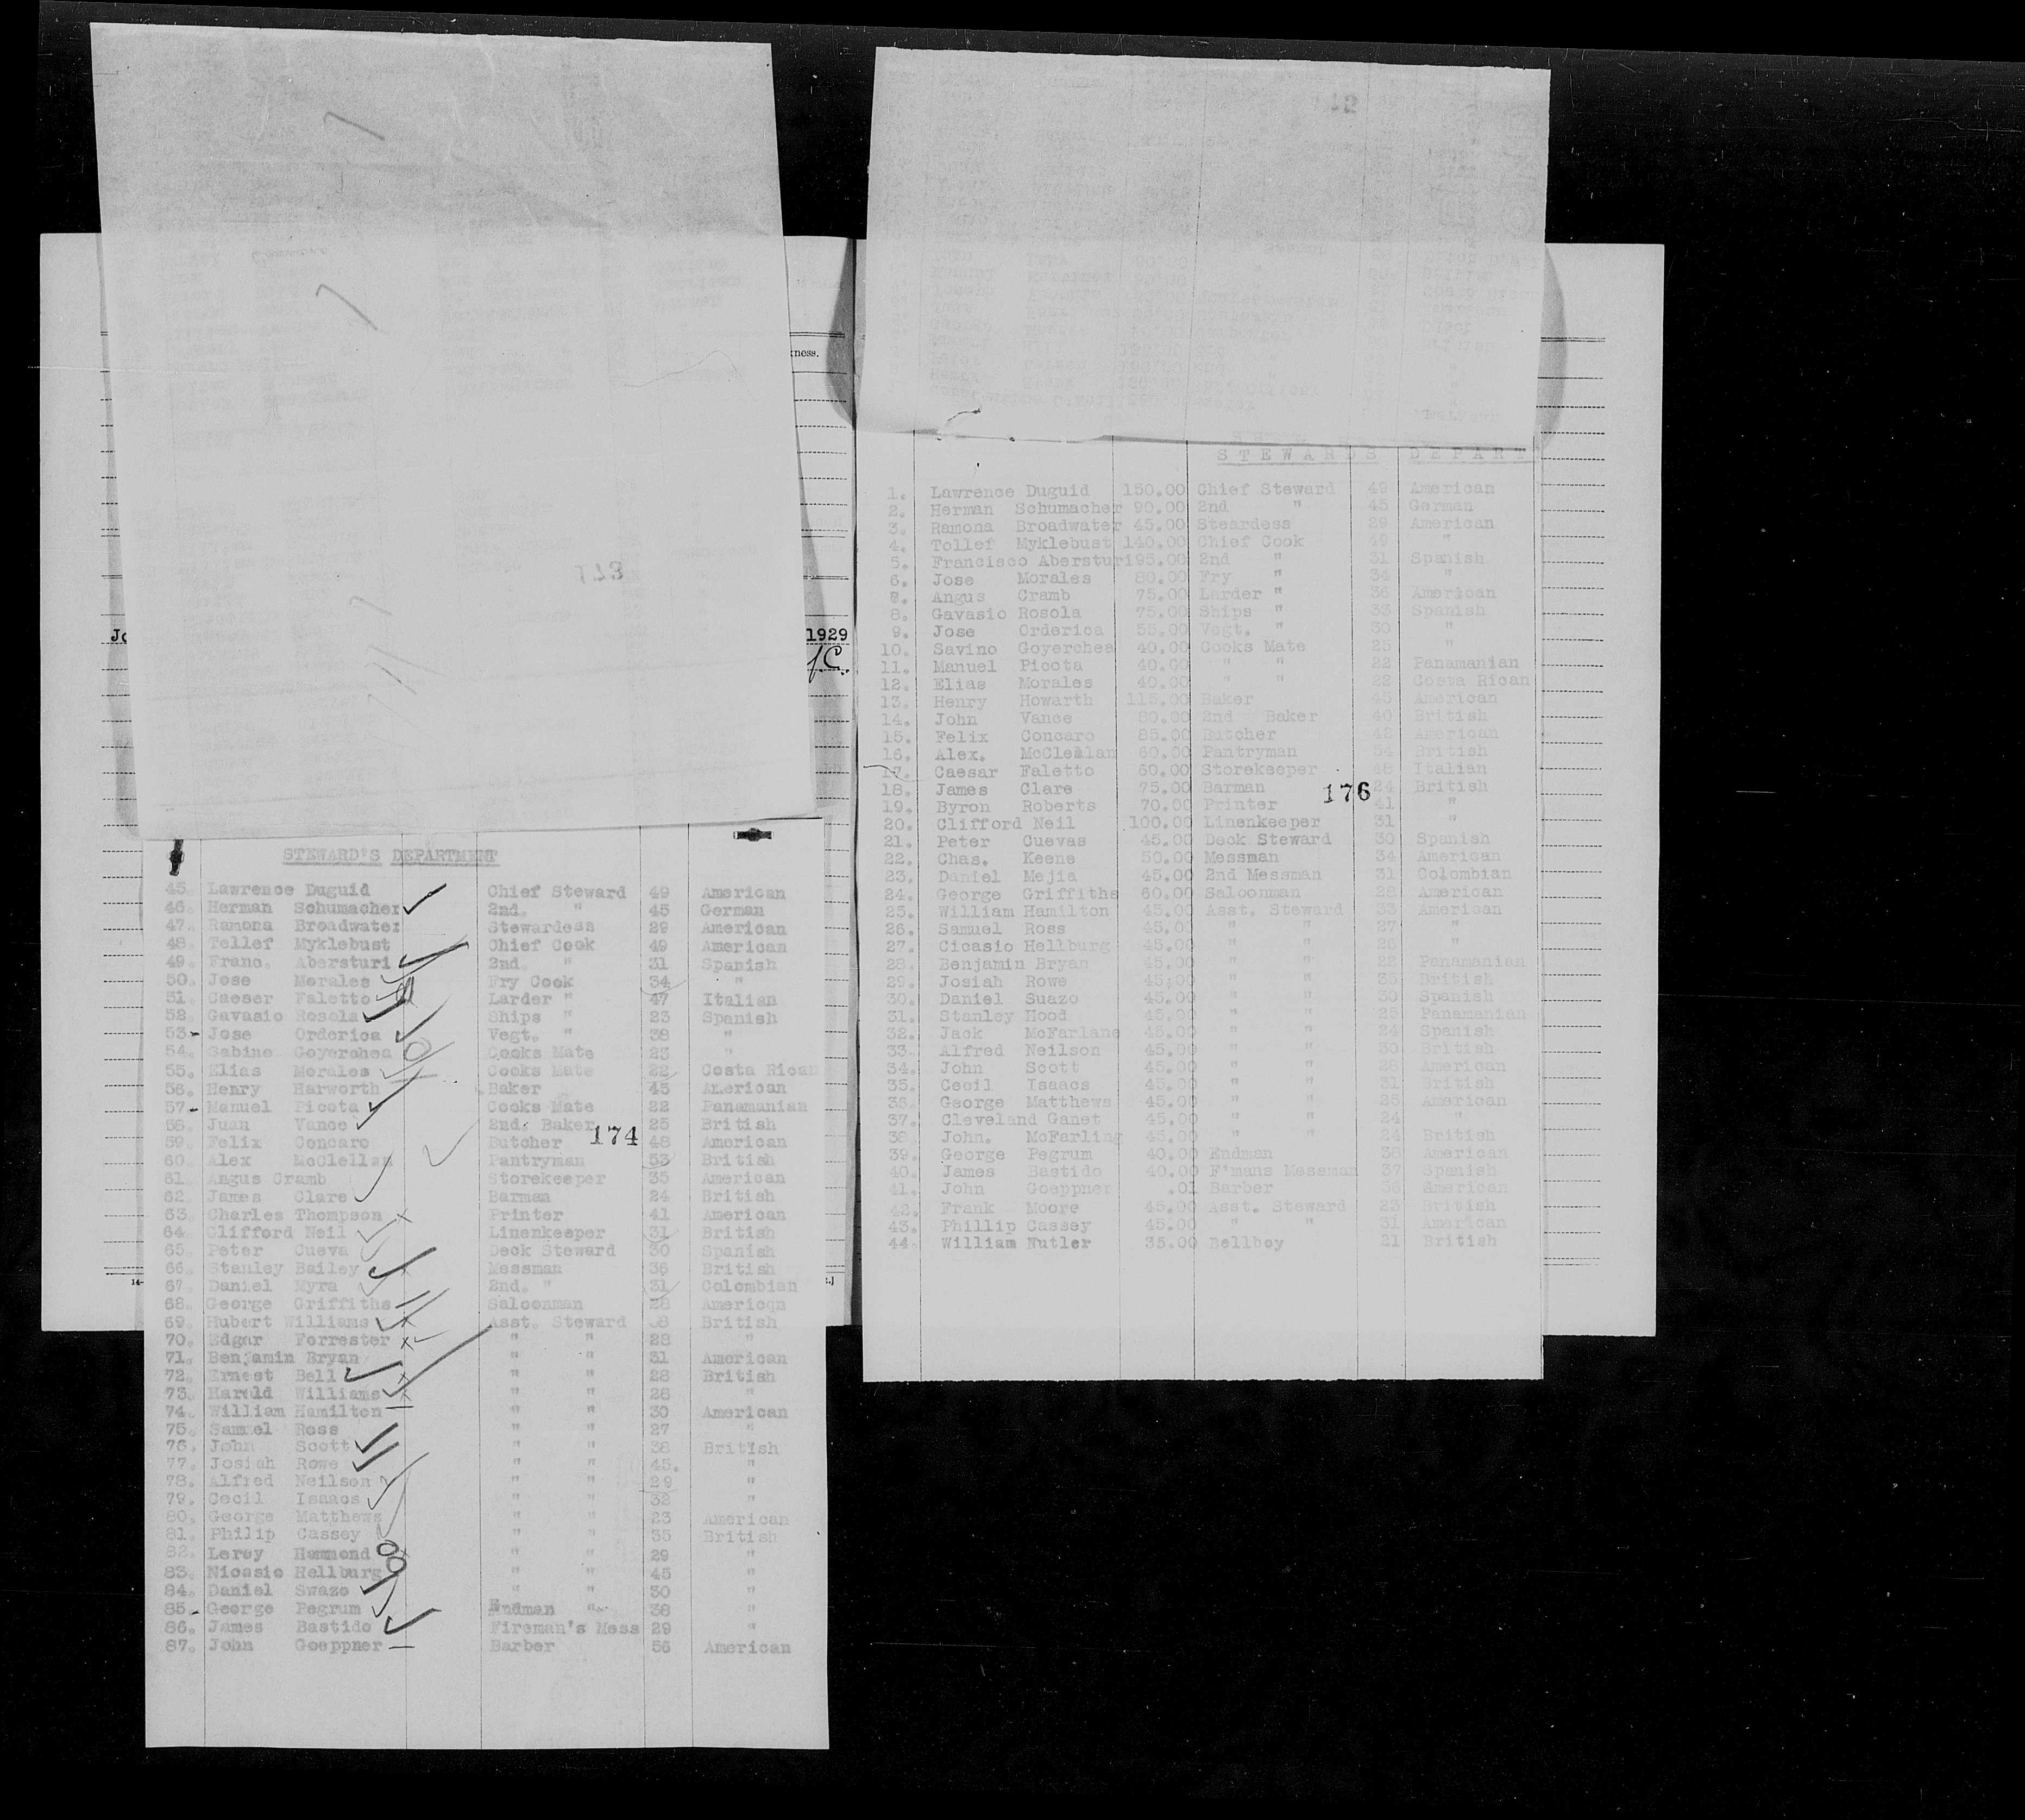 ness.
1929
173
174
STEWARD'S DEPARTMENT
45. Lawrence Duguid Chief Steward 49 American
46. Herman Schumacher 2nd. " 45 German
47. Ramona Broadwater Stewardess 29 American
48. Tollef Myklebust Chief Cook 49 American
49. Franc. Abersturi 2nd. " 31 Spanish
50. Jose Morales Fry Cook 34 "
51. Caeser Faletto Larder " 47 Italian
52. Gavasio Rosola Ships " 23 Spanish
53. Jose Orderica Vegt. " 38 "
54. Sabino Goyerchea Cooks Mate 23 "
55. Elias Morales Cooks Mate 22 Costa Rican
56. Henry Harworth Baker 45 American
57. Manuel Picota Cooks Mate 22 Panamanian
58. Juan Vance 2nd. Baker 25 British
59. Felix Concaro Butcher 48 American
60. Alex McClellan Pantryman 53 British
61. Angus Cramb Storekeeper 35 American
62. James Clare Barman 24 British
63. Charles Thompson Printer 41 American
64. Clifford Neil Linenkeeper 31 British
65. Peter Cueva Deck Steward 30 Spanish
66. Stanley Bailey Messman 36 British
67. Daniel Myra 2nd. " 31 Colombian
68. George Griffiths Saloonman 28 Americqn
69. Hubert Williams Asst. Steward 38 British
70. Edgar Forrester " " 28 "
71. Benjamin Bryan " " 31 American
72. Ernest Bell " " 28 British
73. Harold Williams " " 26 "
74. William Hamilton " " 30 American
75. Samuel Ross " " 27 "
76. John Scott " " 38 British
77. Josiah Rowe " " 45. "
78. Alfred Neilson " " 29 "
79. Cecil Isaacs " " 32 "
80. George Matthews " " 23 American
81. Philip Cassey " " 35 British
82. Leroy Hammond " " 29 "
83. Nicasio Hellburg " " 45 "
84. Daniel Swazo " " 30 "
85. George Pegrum Endman " 38 "
86. James Bastido Fireman's Mess 29 "
87. John Goeppner Barber 56 American
STEWARDS DEPART
1. Lawrence Duguid 150.00 Chief Steward 49 American
2. Herman Schumacher 90.00 2nd " 45 German
3. Ramona Broadwater 45.00 Steardess 29 American
4. Tollef Myklebust 140.00 Chief Cook 49 "
5. Francisco Abersturi 95.00 2nd " 31 Spanish
6. Jose Morales 80.00 Fry " 34 "
7. Angus Cramb 75.00 Larder " 36 American
8. Gavasio Rosola 75.00 Ships " 33 Spanish
9. Jose Orderica 55.00 Vegt. " 30 "
10. Savino Goyerchea 40.00 Cooks Mate 25 "
11. Manuel Picota 40.00 " " 22 Panamanian
12. Elias Morales 40.00 " " 22 Costa Rican
13. Henry Howarth 115.00 Baker 45 American
14. John Vance 80.00 2nd Baker 40 British
15. Felix Concaro 85.00 Butcher 48 American
16. Alex. McClellan 60.00 Pantryman 54 British
17. Caesar Faletto 60.00 Storekeeper 48 Italian
18. James Clare 75.00 Barman 24 British
176
19. Byron Roberts 70.00 Printer 41 "
20. Clifford Neil 100.00 Linenkeeper 31 "
21. Peter Cuevas 45.00 Deck Steward 30 Spanish
22. Chas. Keene 50.00 Messman 34 American
23. Daniel Mejia 45.00 2nd Messman 31 Colombian
24. George Griffiths 60.00 Saloonman 28 American
25. William Hamilton 45.00 Asst. Steward 33 American
26. Samuel Ross 45.00 " " 27 "
27. Cicasio Hellburg 45.00 " " 26 "
28. Benjamin Bryan 45.00 " " 22 Panamanian
29. Josiah Rowe 45;00 " " 35 British
30. Daniel Suazo 45.00 " " 30 Spanish
31. Stanley Hood 45.00 " " 25 Panamanian
32. Jack McFarlane 45.00 " " 24 Spanish
33. Alfred Neilson 45.00 " " 30 British
34. John Scott 45.00 " " 28 American
35. Cecil Isaacs 45.00 " " 31 British
36. George Matthews 45.00 " " 25 American
37. Cleveland Ganet 45.00 " " 24 "
38. John. McFarling 45.00 " " 24 British
39. George Pegrum 40.00 Endman 38 American
40. James Bastido 40.00 F'mans Messman 37 Spanish
41. John Goeppner .01 Barber 56 American
42. Frank Moore 45.00 Asst. Steward 23 British
43. Phillip Cassey 45.00 " " 31 American
44. William Nutler 35.00 Bellboy 21 British